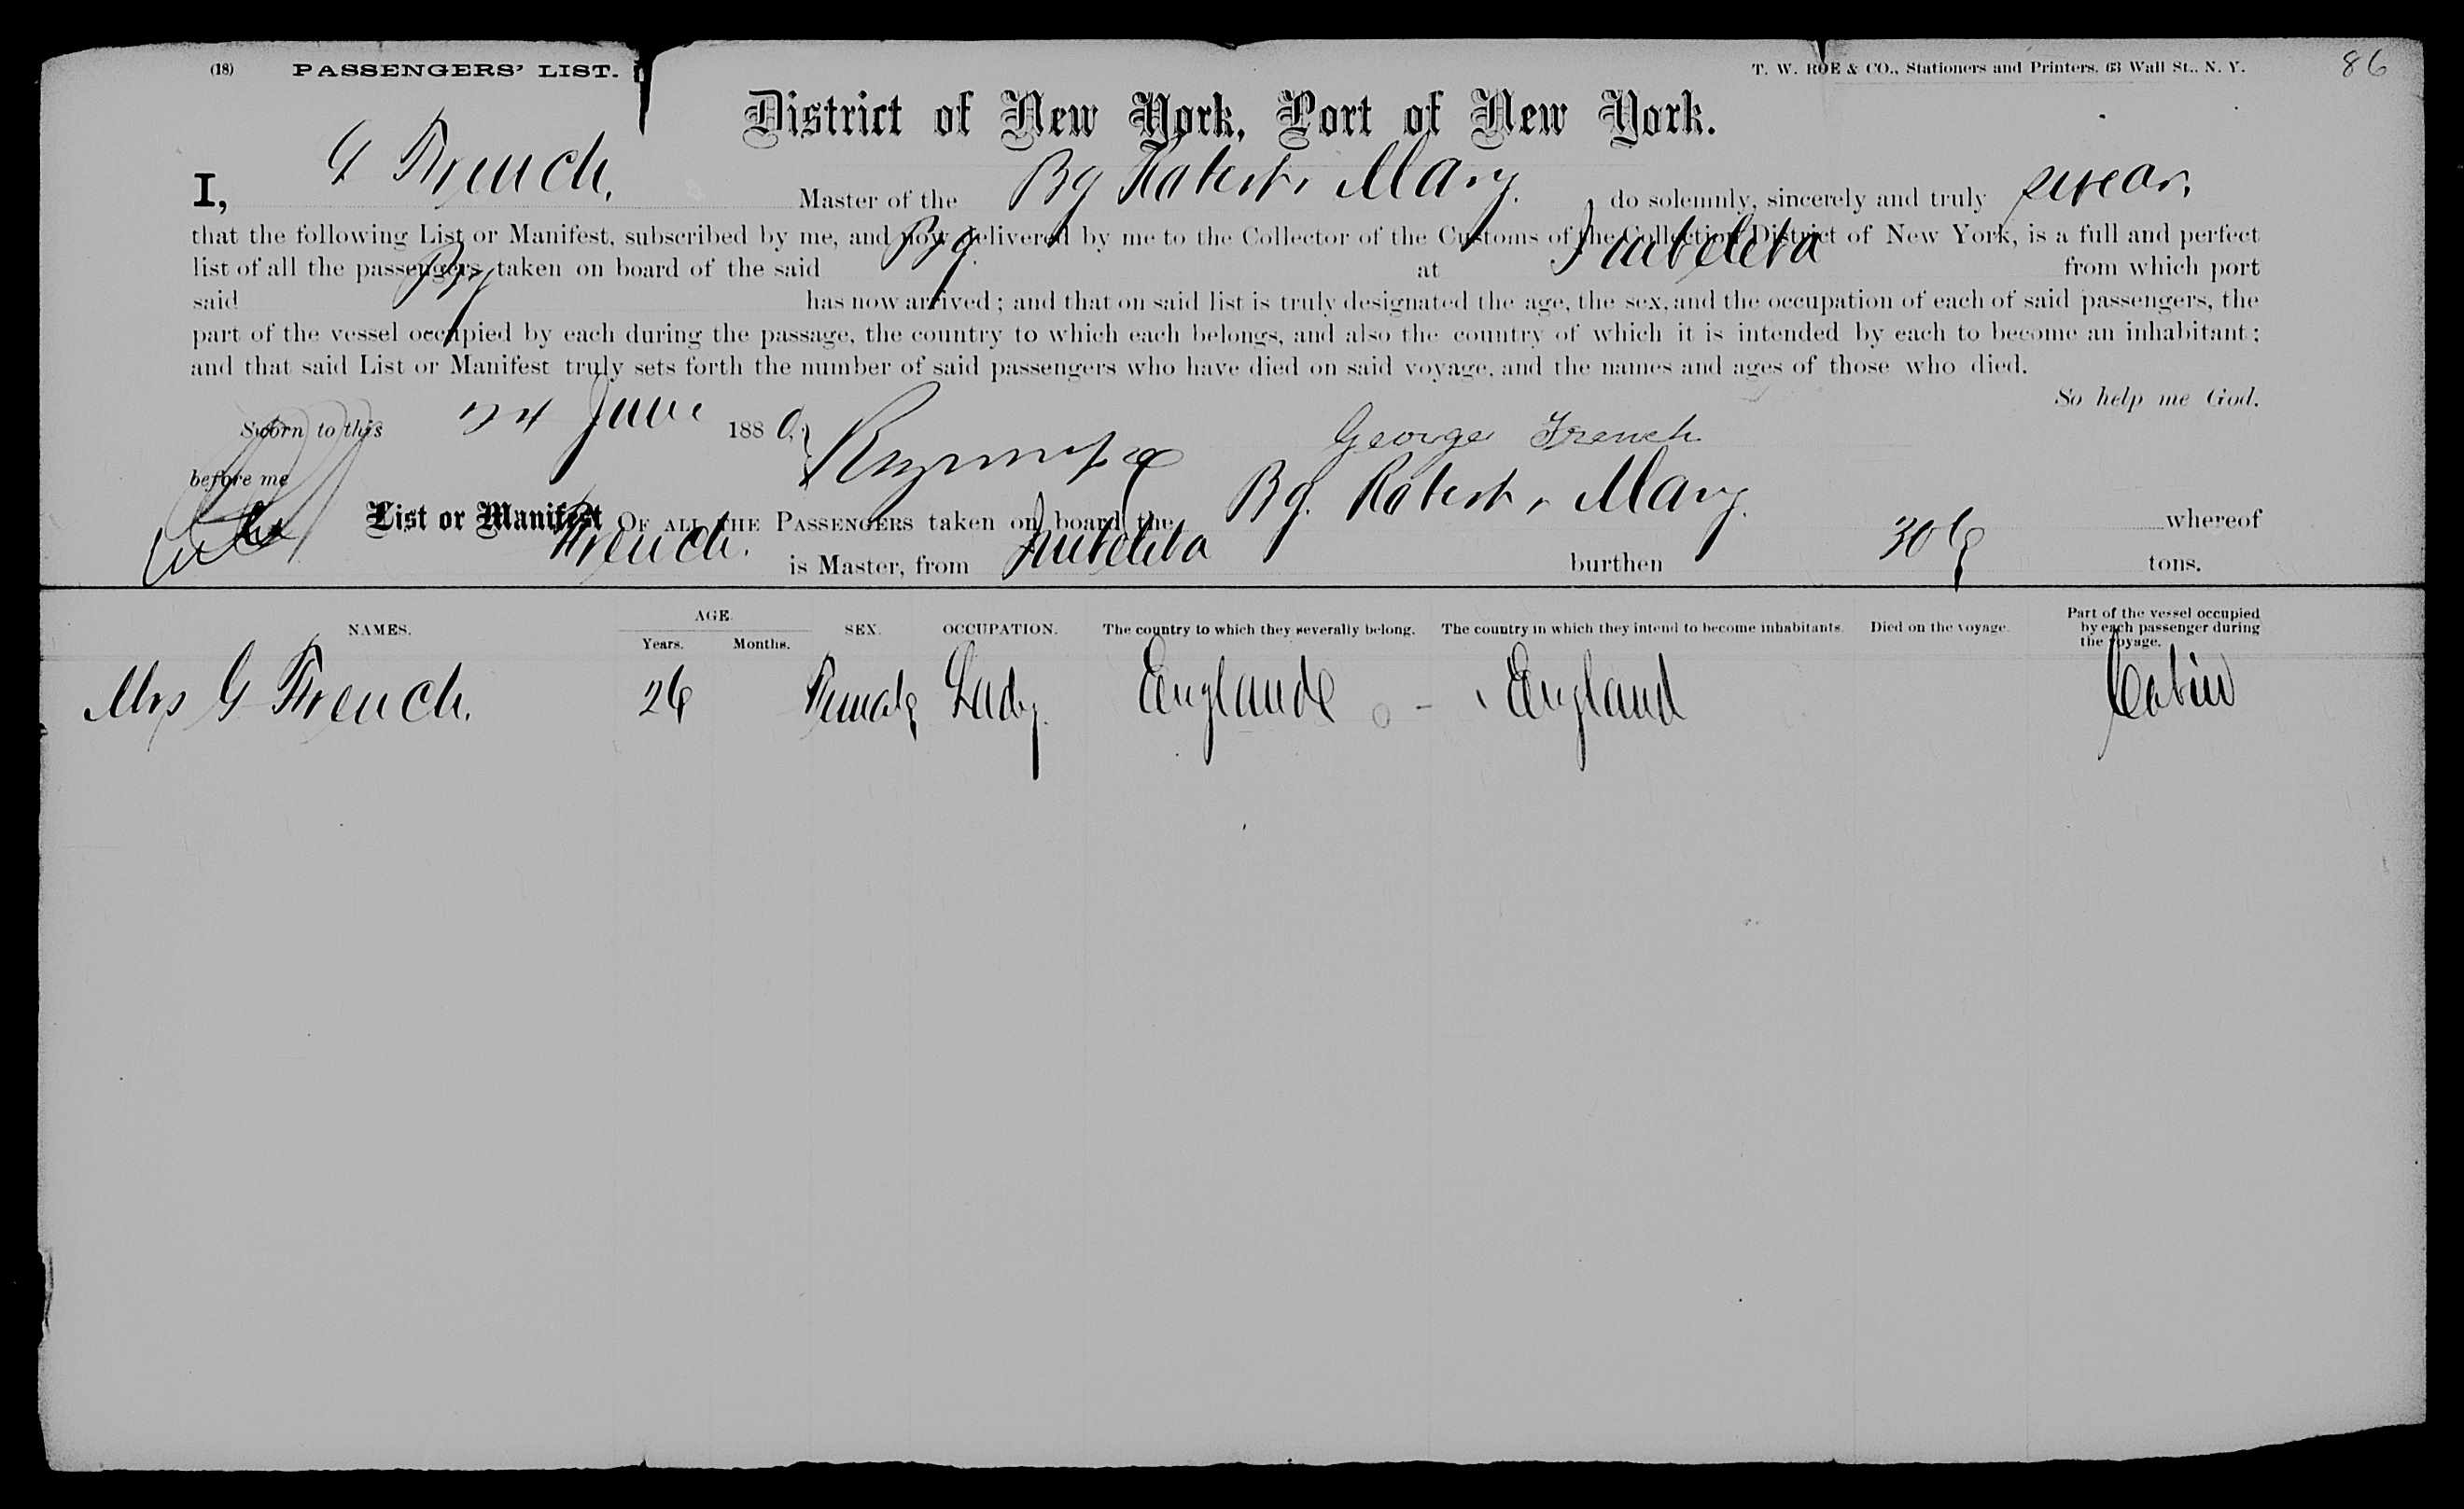 (18) PASSENGERS' LIST. T. W. ROE & CO., Stationers and Printers, 63 Wall St., N. Y. 86
District of New York, Port of New York.
I, G French, Master of the Bg Robert & Mary. do solemnly, sincerely and truly swear,
that the following List or Manifest, subscribed by me, and now delivered by me to the Collector of the Customs of the Collection District of New York, is a full and perfect
list of all the passengers taken on board of the said Bg. at from which port
said Bg has now arrived; and that on said list is truly designated the age, the sex, and the occupation of each of said passengers, the
part of the vessel occupied by each during the passage, the country to which each belongs, and also the country of which it is intended by each to become an inhabitant;
and that said List or Manifest truly sets forth the number of said passengers who have died on said voyage, and the names and ages of those who died.
So help me God.
Sworn to this 24 June 1880, George French
before me
List or Manifest OF ALL THE PASSENGERS taken on board the Bg. Robert & Mary. whereof
French. is Master, from burthen 306 tons.
NAMES. AGE. Years. Months. SEX. OCCUPATION. The country to which they severally belong. The country in which they intend to become inhabitants. Died on the voyage. Part of the vessel occupied by each passenger during the voyage.
Mrs G French. 26 Female Lady. England - England Cabin